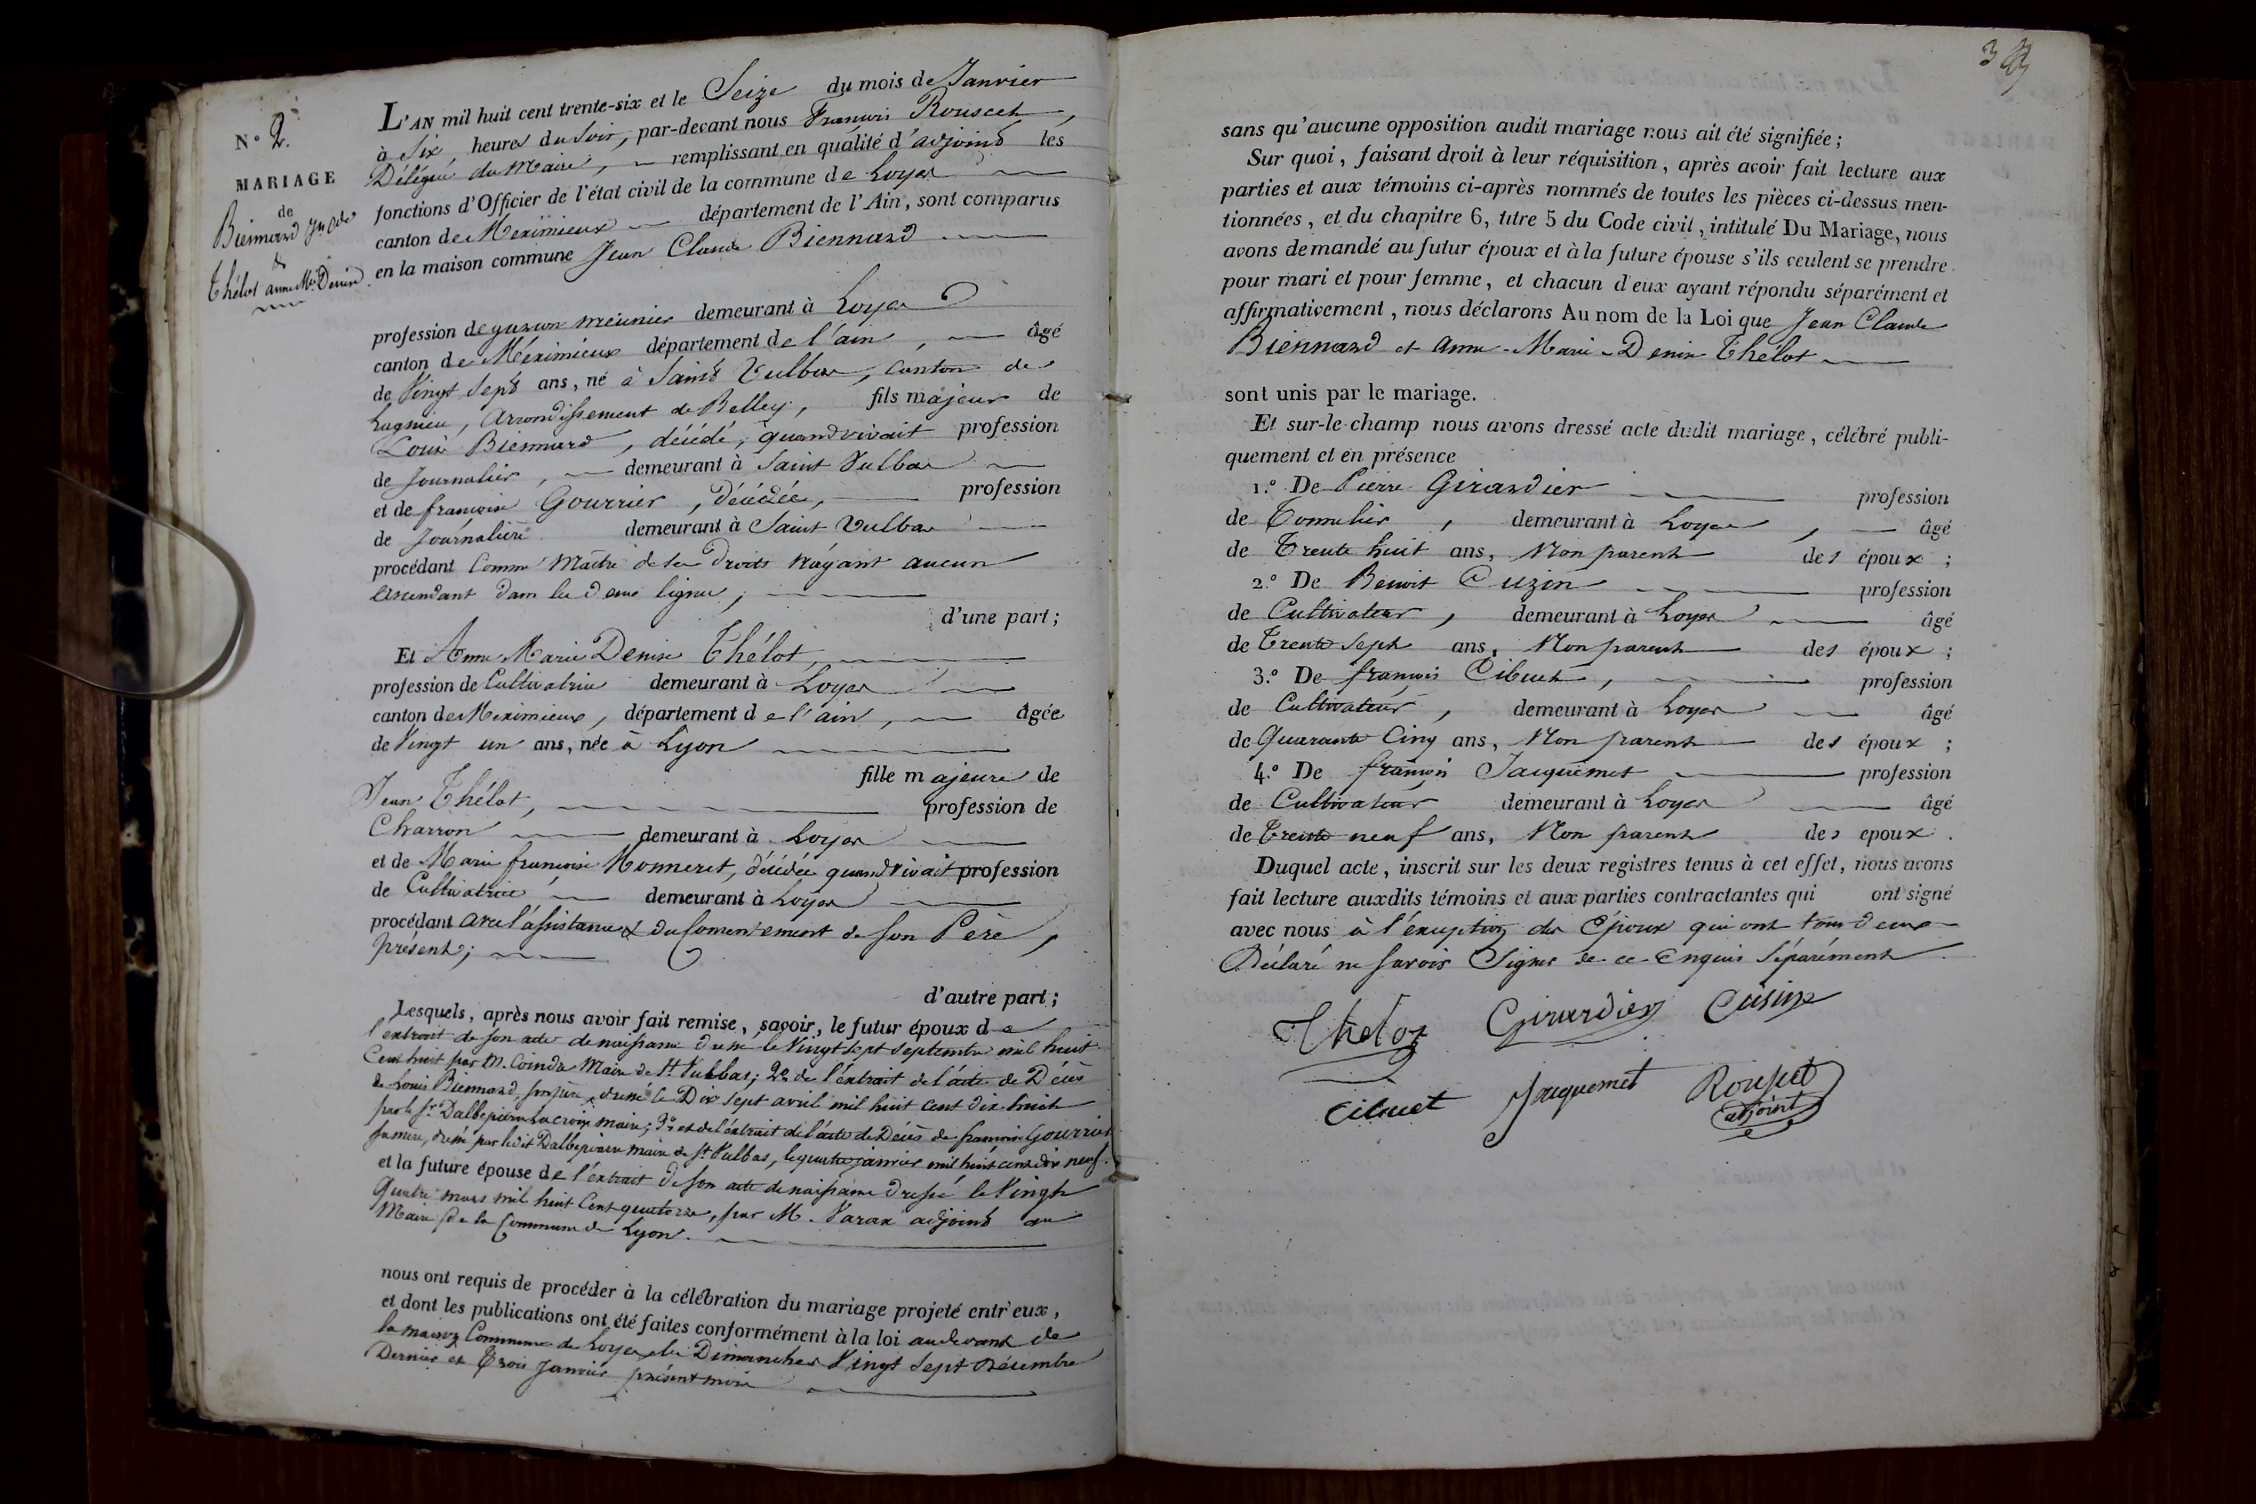 N° 2.
MARIAGE
de
Biennard Jn Cde
&
Thélot anne Mie Denise
L'AN mil huit cent trente-six et le Seize du mois de Janvier
à Six, heures du Soir, par-devant nous François Rouscet,
Délégué du Maire, remplissant en qualité d'adjoint les
fonctions d'Officier de l'état civil de la commune de Loyes
canton de Meximieux département de l'Ain, sont comparus
en la maison commune Jean Claude Biennard
profession de garçon meunier demeurant à Loyes
canton de Méximieux département de l'ain, âgé
de Vingt Sept ans, né à Saint Vulbas, canton de
Lagnieu, Arrondissement de Belley, fils majeur de
Louis Biennard, décédé, quand vivait profession
de Journalier, demeurant à Saint Vulbas
et de françoise Gourrier, Décédée, profession
de Journalière demeurant à Saint Vulbas
procédant Comme Maître de ses Droits n'ayant aucun
Ascendant dans les deux lignes;
d'une part;
Et Anne Marie Denise Thélot,
profession de Cultivatrice demeurant à Loyes
canton de Meximieux, département de l'ain, âgée
de Vingt un ans, née à Lyon
fille majeure de
Jean Thélot, profession de
Charron demeurant à Loyes
et de Marie françoise Monneret, décédée quand vivait profession
de Cultivatrice demeurant à Loyes
procédant avec l'assistance & du Consentement de son Père,
présent;
d'autre part;
Lesquels, après nous avoir fait remise, savoir, le futur époux de
l'extrait de son acte de naissance dressé le Vingt sept Septembre mil huit
Cent huit par M. Coinde Maire de St Vulbas; 2° de l'extrait de l'acte de Décès
de Louis Biennard, son père, dressé le Dix Sept avril mil huit cent dix-huit
par le Sr Dalbepierre Lacroix maire; 3° et de l'extrait de l'acte de Décès de françoise Gourrier
sa mère, dressé par ledit Dalbepierre maire de St Vulbas, le quatre janvier mil huit cent dix neuf.
et la future épouse de l'extrait de son acte de naissance dressé le Vingt
Quatre mars mil huit Cent quatorze, par M. Varax adjoint au
Maire de la Commune de Lyon.
nous ont requis de procéder à la célébration du mariage projeté entr'eux,
et dont les publications ont été faites conformément à la loi au devant de
la maison Commune de Loyes, les Dimanches Vingt Sept Décembre
Dernier et Trois Janvier présent mois
sans qu'aucune opposition audit mariage nous ait été signifiée;
Sur quoi, faisant droit à leur réquisition, après avoir fait lecture aux
parties et aux témoins ci-après nommés de toutes les pièces ci-dessus men-
tionnées, et du chapitre 6, titre 5 du Code civil, intitulé Du Mariage, nous
avons demandé au futur époux et à la future épouse s'ils veulent se prendre
pour mari et pour femme, et chacun d'eux ayant répondu séparément et
affirmativement, nous déclarons Au nom de la Loi que Jean Claude
Biennard et Anne-Marie-Denise Thélot
sont unis par le mariage.
Et sur-le-champ nous avons dressé acte dudit mariage, célébré publi-
quement et en présence
1.° De Pierre Girardier profession
de Tonnelier, demeurant à Loyes, âgé
de Trente huit ans, Non parent des époux;
2.° De Benoit Cuzin profession
de Cultivateur, demeurant à Loyes âgé
de Trente Sept ans, Non parent des époux;
3.° De françois Cibuet, profession
de Cultivateur, demeurant à Loyes âgé
de Quarante Cinq ans, Non parent des époux;
4.° De françois Jacquemet profession
de Cultivateur demeurant à Loyes âgé
de Trente neuf ans, Non parent des epoux.
Duquel acte, inscrit sur les deux registres tenus à cet effet, nous avons
fait lecture auxdits témoins et aux parties contractantes qui ont signé
avec nous à l'exception des Époux qui ont tous deux
Déclaré ne savoir Signer de ce Enquis Séparément.
Thelot Girardier Cusin
Cibuet Jacquemet Rouscet
adjoint